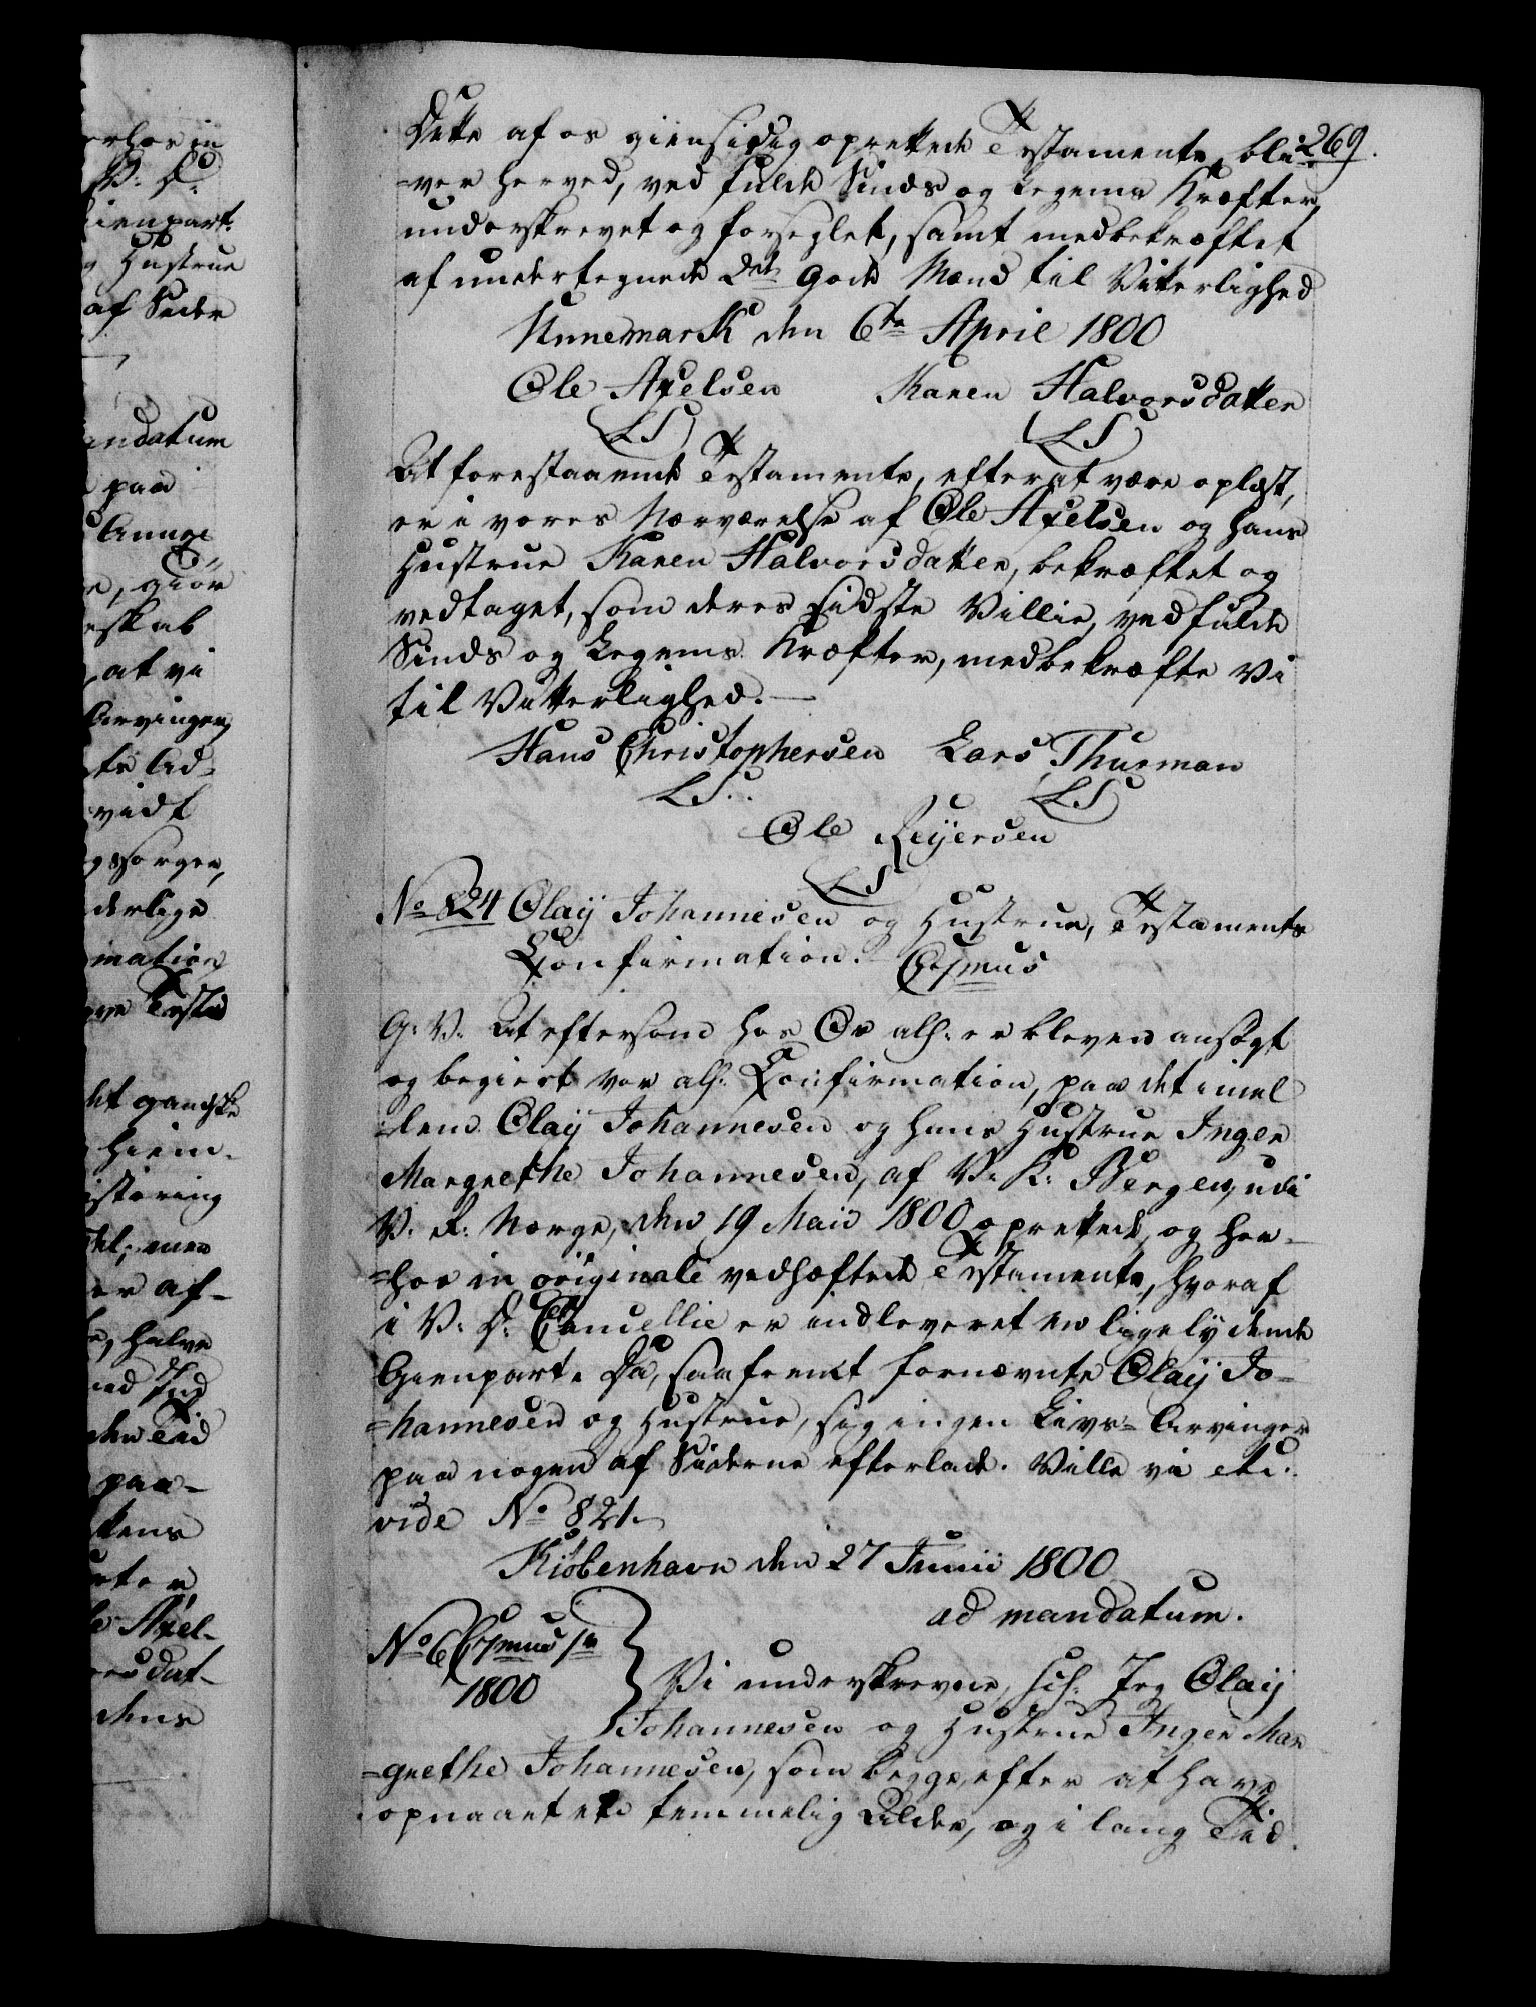 269.
Dette af os giensidig oprettede Testamente, bli-
-ver herved, ved fulde Sinds og Legems Kræfter,
underskrevet og forseglet, samt medbekræftet
af undertegnede Dnt. Gode Mænd til Vitterlighed
Unnemark den 6te April 1800
Ole Axelsen Karen Halvorsdatter
LS LS
At forestaaende Testamente, efter at være oplæst,
er i vores Nærværelse af Ole Axelsen og hans
Hustrue Karen Halvorsdatter, bekræftet og
vedtaget, som deres sidste Villie, ved fulde
Sinds og Legems Kræfter, medbekræfte Vi
til Vitterlighed. —
Hans Christophersen Lars Thurman
LS.. LS
Ole Reijersen
LS
No 824 Olaij Johannesen og Hustrue, Testaments
Confirmation.
G: V: At eftersom hos Os alh: er bleven ansøgt
og begiert vor alh: Confirmation, paa det imel
-lem Olaij Johannesen og hans Hustrue Inger
Margrethe Johannesen, af V. K: Bergen, udi
V: R: Norge, den 19 Maii 1800 oprettede, og her-
-hos in originali vedhæftede Testamente, hvoraf
i V: D: Cancellie er indleveret en ligelydende
Gienpart. Da, saafremt fornævnte Olaij Jo-
-hannesen og Hustrue, sig ingen Livs-Arvinger
paa nogen af Siderne efterlade. Ville vi etc:
vide No 821.
Kiøbenhavn den 27 Junii 1800
ad mandatum.
No 6
1800
Vi underskrevne, Jeg Olaij
Johannesen og Hustrue Inger Mar
-grethe Johannesen, som begge, efter at have
opnaaet en temmelig Alder, og i lang Tid.
erhos in
V: D:
Gienpart.
Hustrue
af Sider
andatum
paa
, giør
skab
, at vi
Arvinger
vidt
derlige
mation
det gandske
hiem-
istering
men
er af-
, halve
den Tid
paa-
Axel-